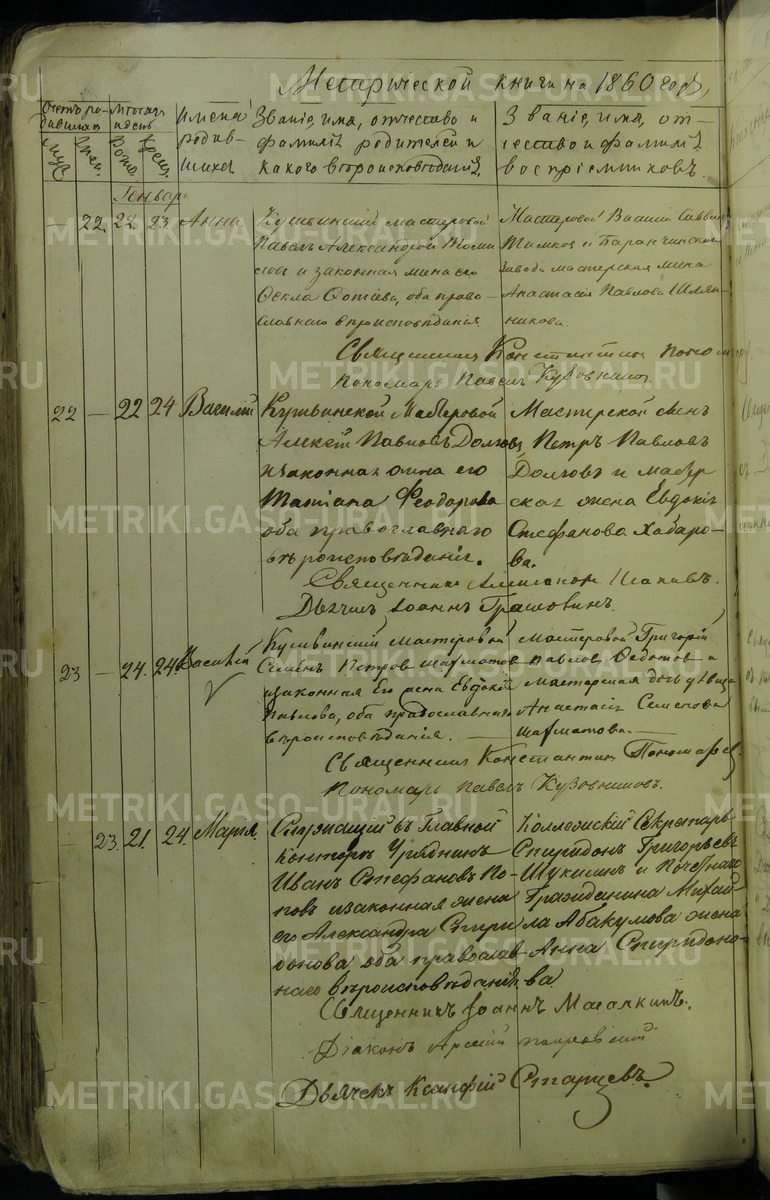 Метрической книги на 1860 годъ,
Счетъ родившихся
Муж. Жен.
Мѣсяцъ и день
Рожд. Крещ.
Имена родившихся
Званіе, имя, отчество и
фамилія родителей и
какого вѣроисповѣданія.
Званіе, имя, отчество и фамилія
воспріемниковъ.
Январь
— 22. 22. 23. Анна.
Кушвинскій мастеровой
Павелъ Александровъ
и законная жена его
Ѳекла Ѳотіева, оба право-
славнаго вѣроисповѣданія.
Мастеровой Василій Саввинъ
и Баранчинскаго
завода мастерская жена
Анастасія Павлова Шляп-
никова.
Священникъ Константинъ Пономаревъ.
Пономарь Павелъ Кузовниковъ.
22 — 22 24 Василій
Кушвинской Мастеровой
Алексѣй Павловъ Долговъ
и законная жена его
Татіана Феодорова
оба православнаго
вѣроисповѣданія.
Мастерской сынъ
Петръ Павловъ
Долговъ и мастер
ская жена Евдокія
Стефанова Хабаро-
ва.
Священникъ
Дьячекъ Іоаннъ
23 — 24. 24. Василій
Кушвинскій мастеровой
Семенъ Петров Шахматов
и законная Его жена Евдокія
Павлова, оба православнаго
вѣроисповѣданія.
Мастеровой Григорій
Павлов Федотов и
Мастерская дочь дѣвица
Анастасія Семенова
Шахматова.
Священникъ Константин Пономарев.
Пономарь Павелъ Кузовниковъ.
— 23. 21. 24. Марія.
Служащій въ Главной
Конторѣ Урядникъ
Иванъ Стефановъ По-
повъ и законная жена
его Александра Спири
донова, оба православ-
наго вѣроисповѣданія
Коллежскій Секретарь
Спиридонъ Григорьевъ
Щукинъ и Почетнаго
Гражданина Михай-
ла Абакумова жена
Анна Спиридоно-
ва
Священникъ Іоаннъ Масалкинъ.
Діаконъ Арсеній Покровскій
Дьячекъ Ксанфій Старцевъ.
METRIKI.GASO-URAL.RU